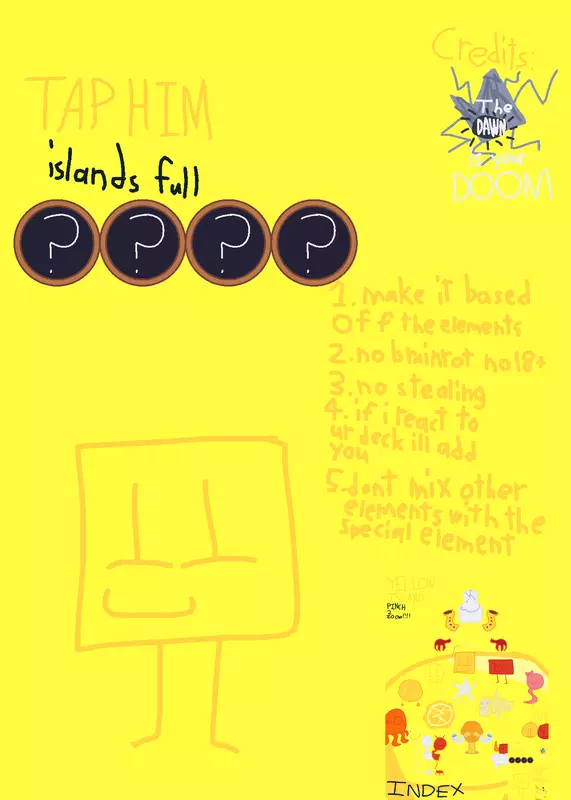 Credits:
The
DAWN
is your
DOOM
TAP HIM
islands full
? ? ? ?
1. make it based
off the elements
2. no brainrot no 18+
3. no stealing
4. if i react to
ur deck ill add
you
5. dont mix other
elements with the
special element
YELLOW
ISLAND
PINCH
Zoom!!!!
INDEX